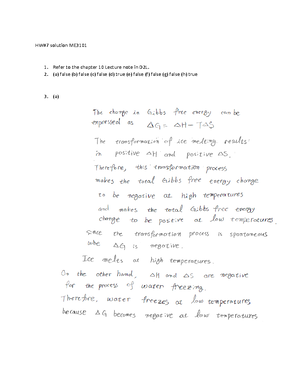 HW#7 solution ME3101
1. Refer to the chapter 10 Lecture note in D2L.
2. (a) false (b) false (c) false (d) true (e) false (f) false (g) false (h) true
3. (a)
The change in Gibbs free energy can be
expressed as ΔG = ΔH - TΔS
The transformation of ice melting results
in positive ΔH and positive ΔS.
Therefore, this transformation process
makes the total Gibbs free energy change
to be negative at high temperatures
and makes the total Gibbs free energy
change to be positive at low temperatures.
Since the transformation process is spontaneous
when ΔG is negative.
Ice melts at high temperatures.
On the other hand, ΔH and ΔS are negative
for the process of water freezing.
Therefore, water freezes at low temperatures
because ΔG becomes negative at low temperatures